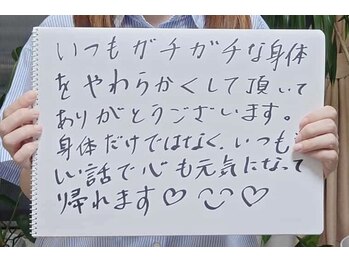 いつもガチガチな身体
をやわらかくして頂いて
ありがとうございます。
身体だけではなく、いつも
い話で心も元気になって
帰れます♡ ♡